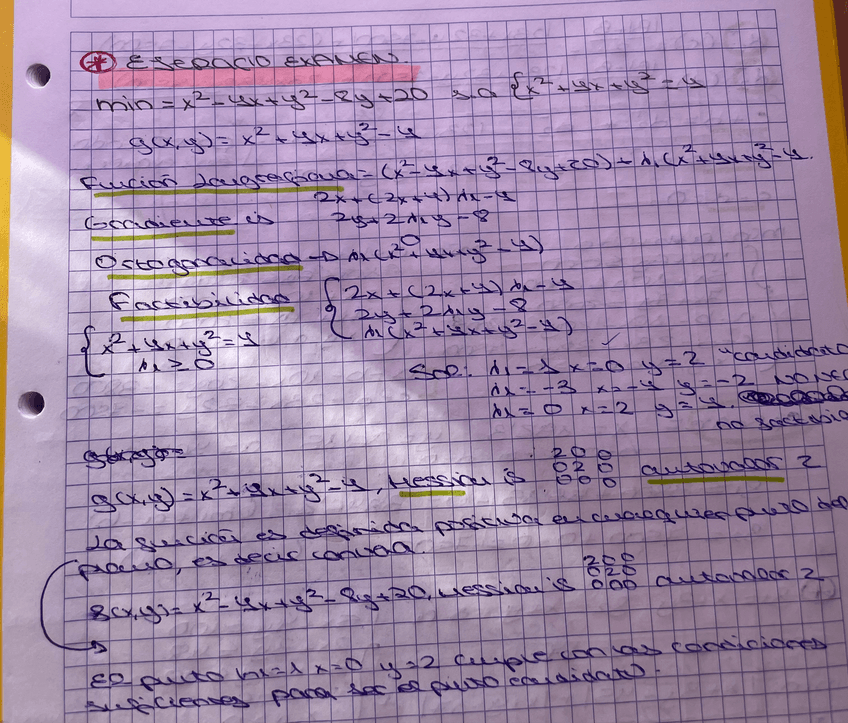 * EJERCICIO EXAMEN.
min = x² - 4x + y² - 8y + 20 s.a { x² + 4x + y² = 4
g(x,y) = x² + 4x + y² - 4
Función Langragiana = (x² - 4x + y² - 8y + 20) + λ1 (x² + 4x + y² - 4.
2x + (2x + 4) λ1 - 4
Gradiente is 2y + 2λ1y - 8
Ortogonalidad → λ1(x² + 4x + y² - 4)
0
Factibilidad { 2x + (2x + 4) λ1 - 4
2y + 2λ1y - 8
λ1(x² + 4x + y² - 4)
{ x² + 4x + y² = 4
λ1 ≥ 0
Sol: λ1 = 1 x = 0 y = 2 "candidato
λ1 = -3 x = -4 y = -2 no
λ1 = 0 x = 2 y = 4.
no
g(x,y) = x² + 4x + y² - 4, Hession is
2 0 0
0 2 0
0 0 0
autovador 2
La función es definida positiva en cualquier punto del
plano, es decir convexa.
f(x,y) = x² - 4x + y² - 8y + 20, Hession is
2 0 0
0 2 0
0 0 0
autovador 2
El punto λ1 = 1 x = 0 y = 2 cumple con las condiciones
suficientes para ser el punto candidato.